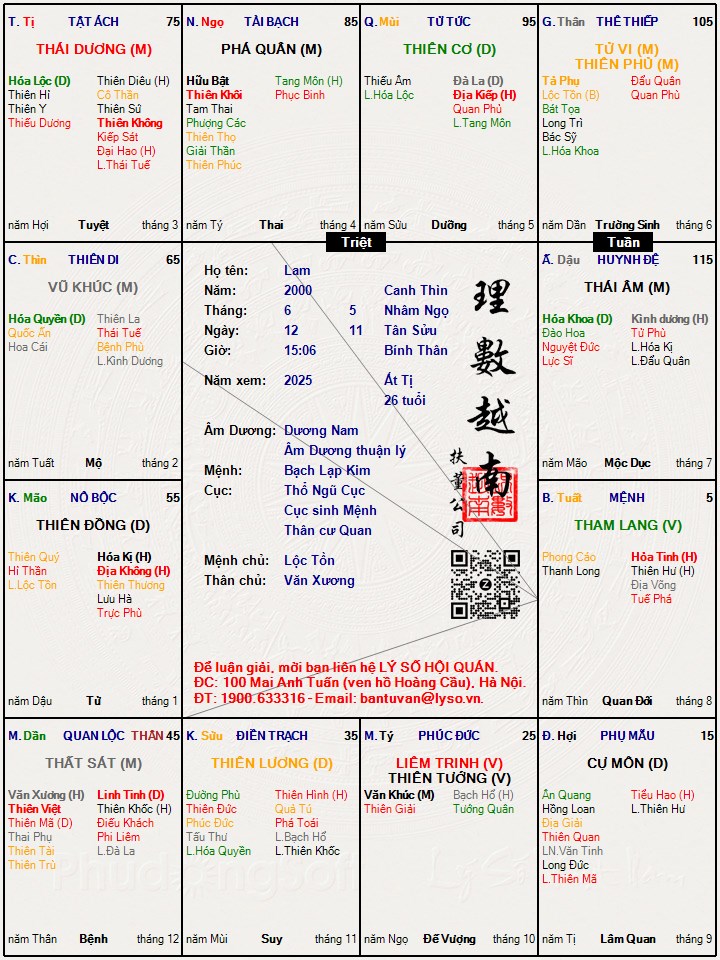 T. Tị TẬT ÁCH 75
THÁI DƯƠNG (M)
Hóa Lộc (D)
Thiên Hỉ
Thiên Y
Thiếu Dương
Thiên Diêu (H)
Cô Thần
Thiên Sứ
Thiên Không
Kiếp Sát
Đại Hao (H)
L.Thái Tuế
năm Hợi Tuyệt tháng 3
N. Ngọ TÀI BẠCH 85
PHÁ QUÂN (M)
Hữu Bật
Thiên Khôi
Tam Thai
Phượng Các
Thiên Thọ
Giải Thần
Thiên Phúc
Tang Môn (H)
Phục Binh
năm Tý Thai tháng 4
Q. Mùi TỬ TỨC 95
THIÊN CƠ (D)
Thiếu Âm
L.Hóa Lộc
Đà La (D)
Địa Kiếp (H)
Quan Phủ
L.Tang Môn
năm Sửu Dưỡng tháng 5
G. Thân THÊ THIẾP 105
TỬ VI (M)
THIÊN PHỦ (M)
Tả Phụ
Lộc Tồn (B)
Bát Tọa
Long Trì
Bác Sỹ
L.Hóa Khoa
Đẩu Quân
Quan Phù
năm Dần Trường Sinh tháng 6
Triệt
Tuần
C. Thìn THIÊN DI 65
VŨ KHÚC (M)
Hóa Quyền (D)
Quốc Ấn
Hoa Cái
Thiên La
Thái Tuế
Bệnh Phù
L.Kình Dương
năm Tuất Mộ tháng 2
Họ tên: Lam
Năm: 2000 Canh Thìn
Tháng: 6 5 Nhâm Ngọ
Ngày: 12 11 Tân Sửu
Giờ: 15:06 Bính Thân
Năm xem: 2025 Ất Tị
26 tuổi
Âm Dương: Dương Nam
Âm Dương thuận lý
Mệnh: Bạch Lạp Kim
Cục: Thổ Ngũ Cục
Cục sinh Mệnh
Thân cư Quan
Mệnh chủ: Lộc Tồn
Thân chủ: Văn Xương
理數越南
扶董公司
Để luận giải, mời bạn liên hệ LÝ SỐ HỘI QUÁN.
ĐC: 100 Mai Anh Tuấn (ven hồ Hoàng Cầu), Hà Nội.
ĐT: 1900.633316 - Email: bantuvan@lyso.vn.
Ấ. Dậu HUYNH ĐỆ 115
THÁI ÂM (M)
Hóa Khoa (D)
Đào Hoa
Nguyệt Đức
Lực Sĩ
Kình dương (H)
Tử Phù
L.Hóa Kị
L.Đẩu Quân
năm Mão Mộc Dục tháng 7
K. Mão NÔ BỘC 55
THIÊN ĐỒNG (D)
Thiên Quý
Hỉ Thần
L.Lộc Tồn
Hóa Kị (H)
Địa Không (H)
Thiên Thương
Lưu Hà
Trực Phù
năm Dậu Tử tháng 1
B. Tuất MỆNH 5
THAM LANG (V)
Phong Cáo
Thanh Long
Hỏa Tinh (H)
Thiên Hư (H)
Địa Võng
Tuế Phá
năm Thìn Quan Đới tháng 8
M. Dần QUAN LỘC THÂN 45
THẤT SÁT (M)
Văn Xương (H)
Thiên Việt
Thiên Mã (D)
Thai Phụ
Thiên Tài
Thiên Trù
Linh Tinh (D)
Thiên Khốc (H)
Điếu Khách
Phi Liêm
L.Đà La
năm Thân Bệnh tháng 12
K. Sửu ĐIỀN TRẠCH 35
THIÊN LƯƠNG (D)
Đường Phù
Thiên Đức
Phúc Đức
Tấu Thư
L.Hóa Quyền
Thiên Hình (H)
Quả Tú
Phá Toái
L.Bạch Hổ
L.Thiên Khốc
năm Mùi Suy tháng 11
M. Tý PHÚC ĐỨC 25
LIÊM TRINH (V)
THIÊN TƯỚNG (V)
Văn Khúc (M)
Thiên Giải
Bạch Hổ (H)
Tướng Quân
năm Ngọ Đế Vượng tháng 10
Đ. Hợi PHỤ MẪU 15
CỰ MÔN (D)
Ân Quang
Hồng Loan
Địa Giải
Thiên Quan
LN.Văn Tinh
Long Đức
L.Thiên Mã
Tiểu Hao (H)
L.Thiên Hư
năm Tị Lâm Quan tháng 9